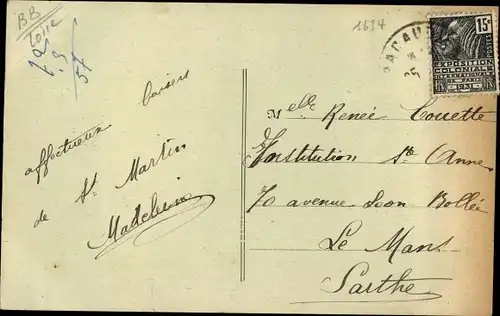 BB
Loire
1634
15c
POSTES
EXPOSITION
COLONIALE
INTERNATIONALE
DE PARIS
1931
affectueux baisers
de St Martin
Madeleine
Melle Renée Couette
Institution Ste Anne
70 avenue Léon Bollée
Le Mans
Sarthe